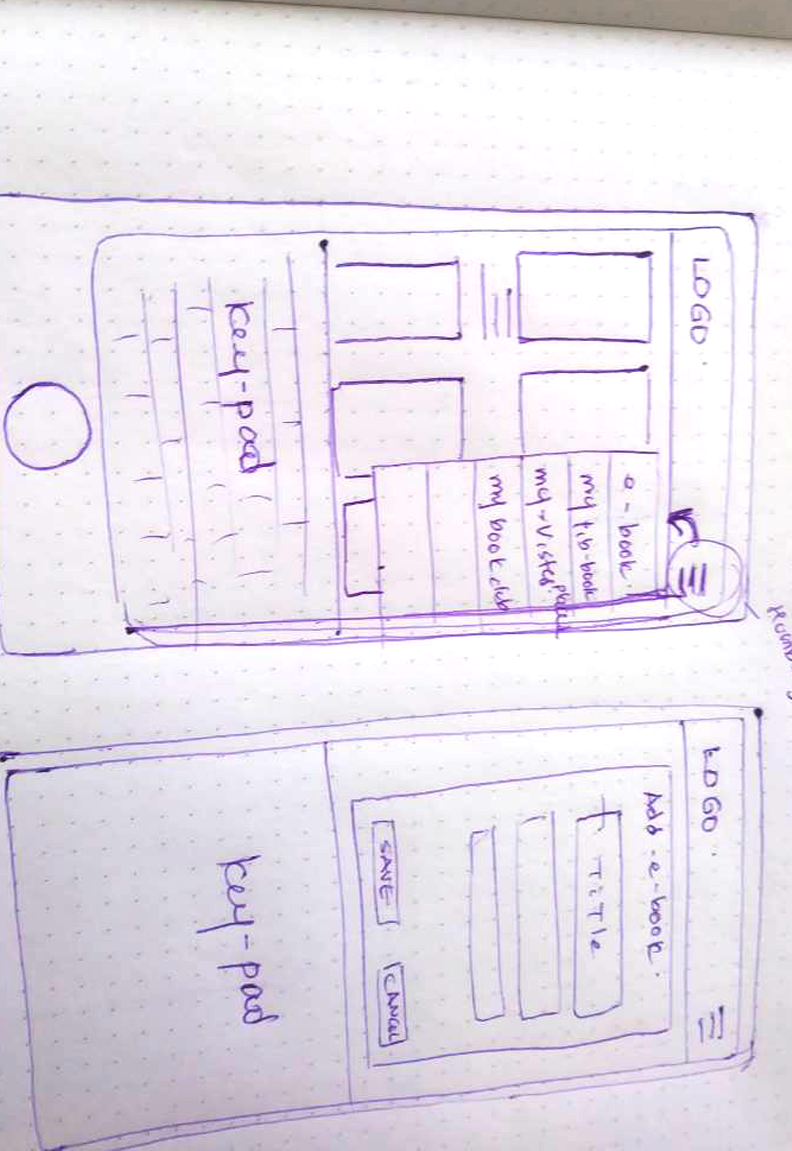 LOGO
e-book
my fib-book
my-visted places
my book club
key-pad
LOGO
Add-e-book
TiTle
SAVE
CANCEL
key-pad